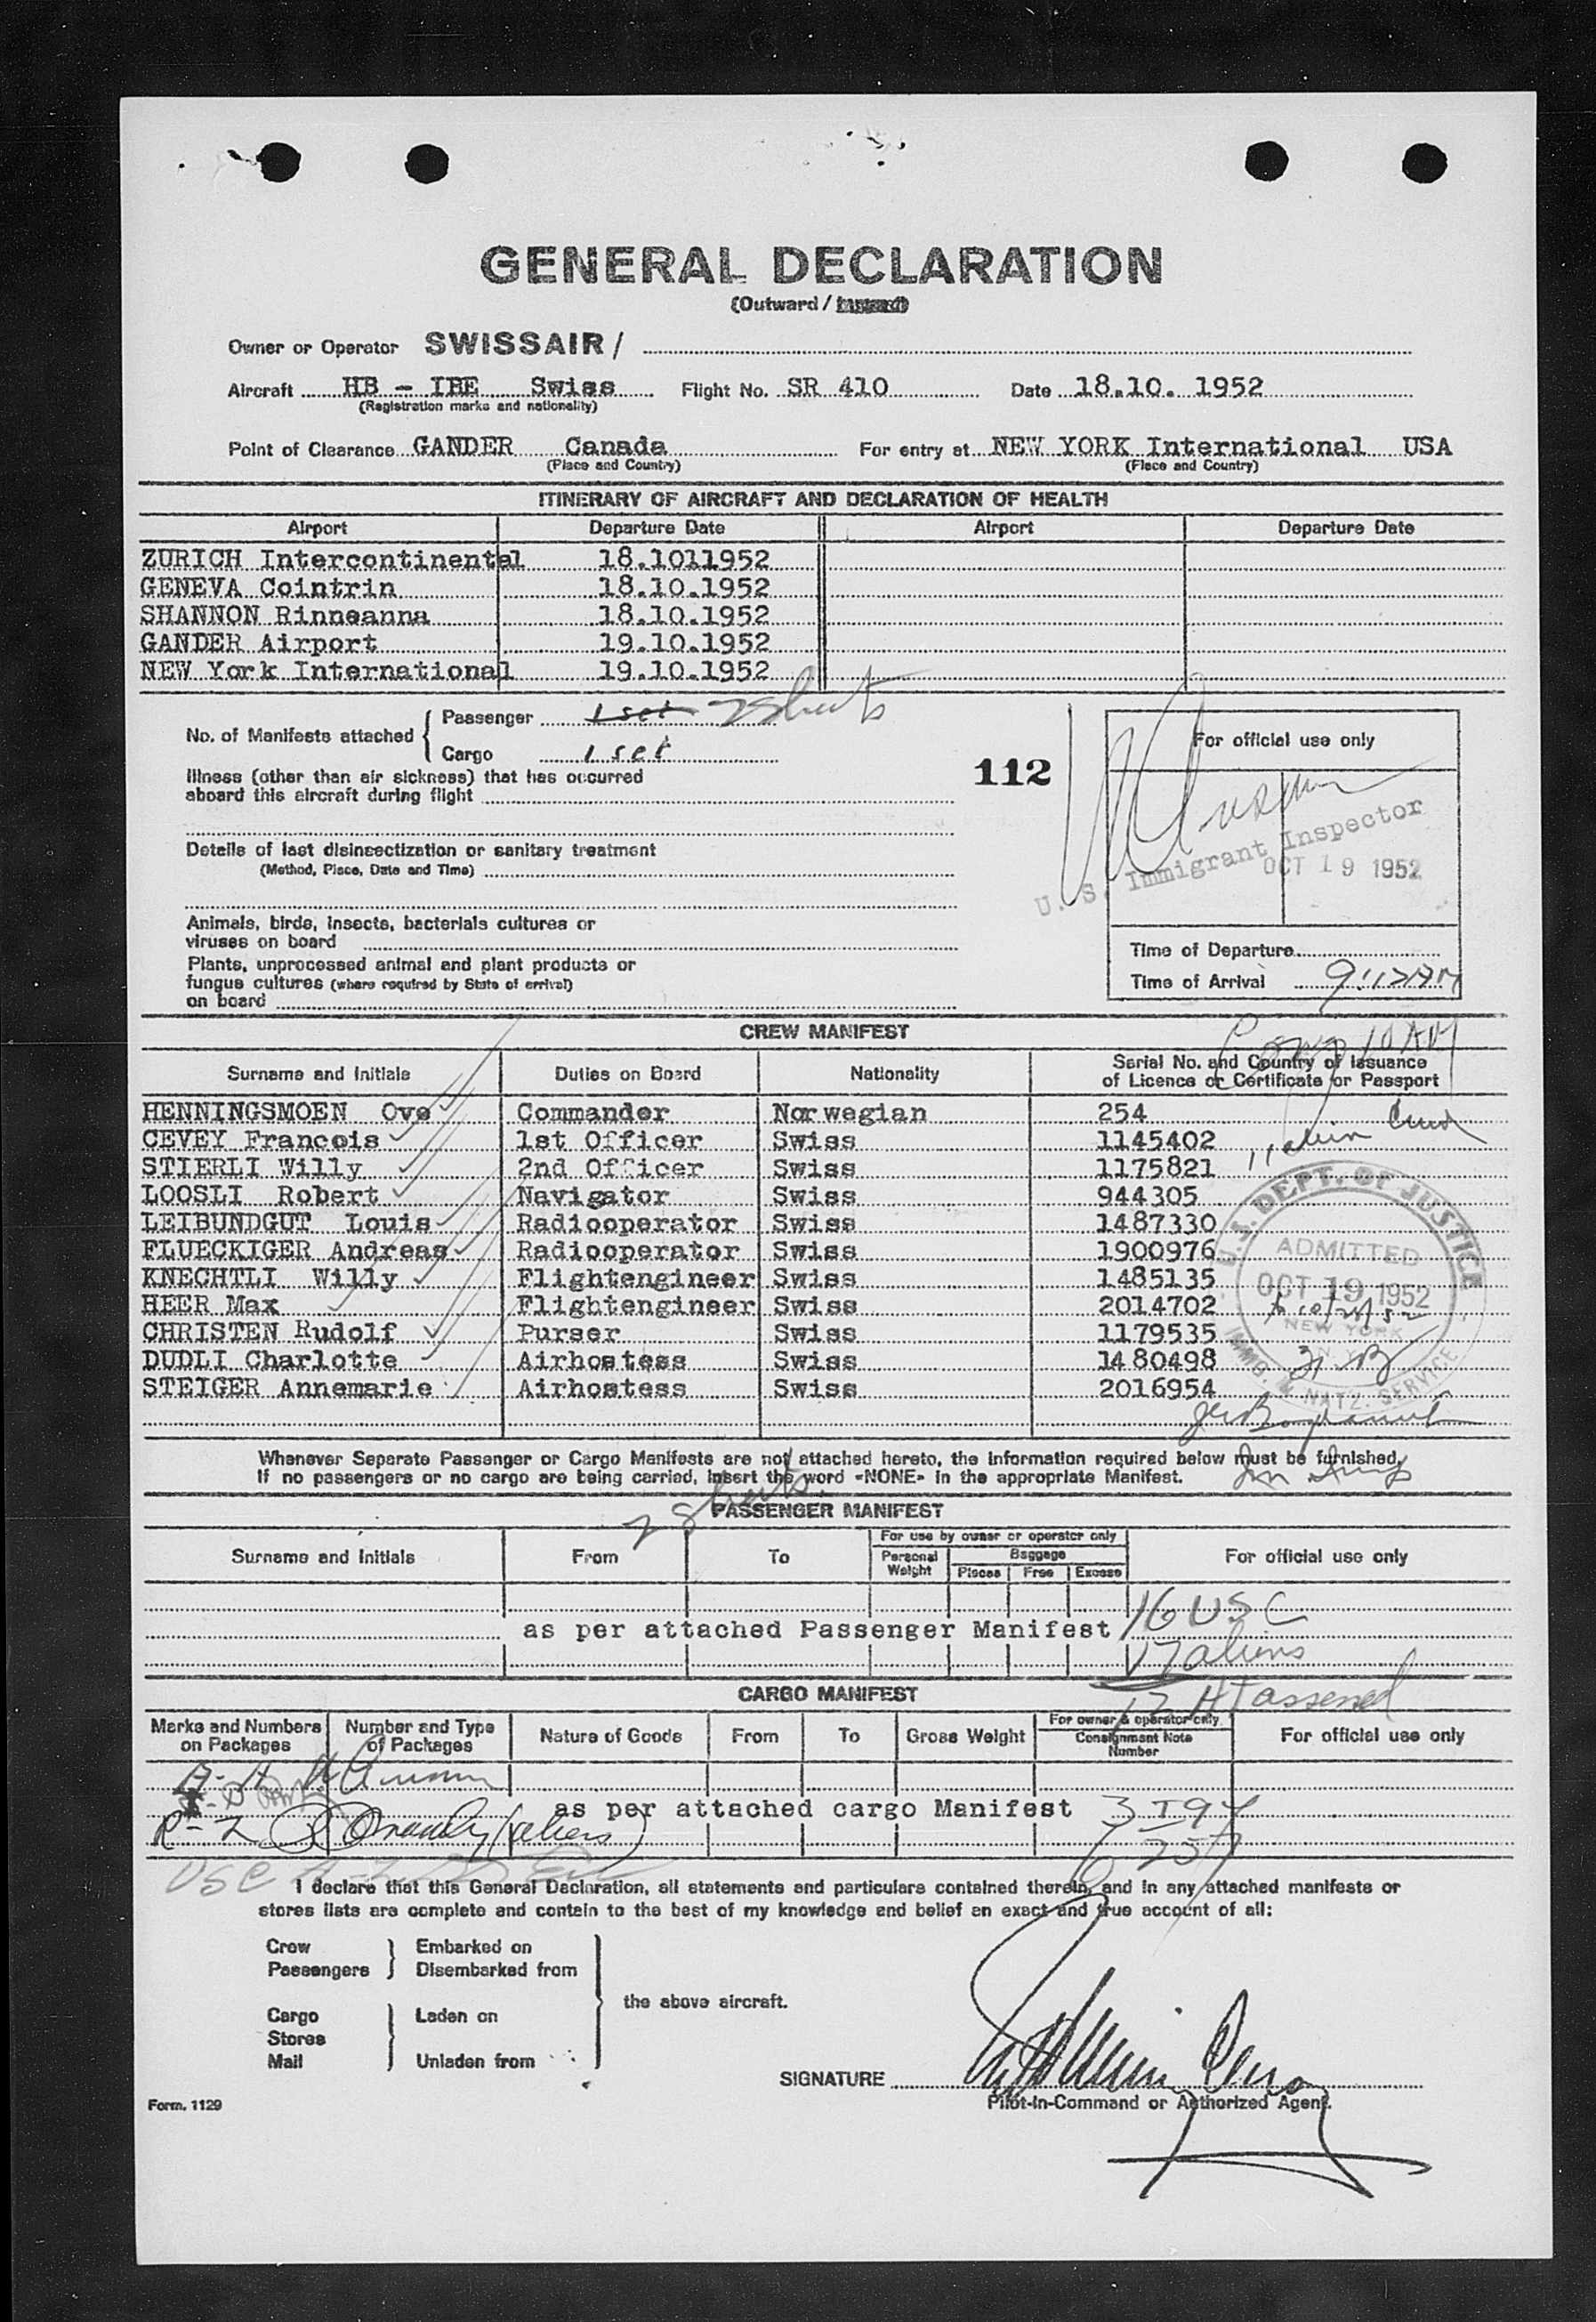 GENERAL DECLARATION
(Outward / Inward)
Owner or Operator SWISSAIR /
Aircraft HB - IBE Swiss Flight No. SR 410 Date 18.10. 1952
(Registration marks and nationality)
Point of Clearance GANDER Canada For entry at NEW YORK International USA
(Place and Country) (Place and Country)
ITINERARY OF AIRCRAFT AND DECLARATION OF HEALTH
Airport Departure Date Airport Departure Date
ZURICH Intercontinental 18.1011952
GENEVA Cointrin 18.10.1952
SHANNON Rinneanna 18.10.1952
GANDER Airport 19.10.1952
NEW York International 19.10.1952
No. of Manifests attached
Passenger 1 set 2 Sheets
Cargo 1 set
112
For official use only
Illness (other than air sickness) that has occurred
aboard this aircraft during flight
Details of last disinsectization or sanitary treatment
(Method, Place, Date and Time)
U. S. Immigrant Inspector
OCT 19 1952
Animals, birds, insects, bacterials cultures or
viruses on board
Plants, unprocessed animal and plant products or
fungus cultures (where required by State of arrival)
on board
Time of Departure
Time of Arrival 9:12AM
CREW MANIFEST
Comp 10 AM
Surname and Initials Duties on Board Nationality Serial No. and Country of Issuance
of Licence or Certificate or Passport
HENNINGSMOEN Ove Commander Norwegian 254
CEVEY Francois 1st Officer Swiss 1145402
STIERLI Willy 2nd Officer Swiss 1175821
LOOSLI Robert Navigator Swiss 944305
LEIBUNDGUT Louis Radiooperator Swiss 1487330
FLUECKIGER Andreas Radiooperator Swiss 1900976
KNECHTLI Willy Flightengineer Swiss 1485135
HEER Max Flightengineer Swiss 2014702
CHRISTEN Rudolf Purser Swiss 1179535
DUDLI Charlotte Airhostess Swiss 1480498
STEIGER Annemarie Airhostess Swiss 2016954
U.S. DEPT. OF JUSTICE
ADMITTED
OCT 19 1952
NEW YORK
N.Y.
IMMG. & NATZ. SERVICE
Whenever Separate Passenger or Cargo Manifests are not attached hereto, the information required below must be furnished,
If no passengers or no cargo are being carried, insert the word «NONE» in the appropriate Manifest.
2 Sheets
PASSENGER MANIFEST
Surname and Initials From To For use by owner or operator only For official use only
Personal Weight Baggage
Pieces Free Excess
16 USC
as per attached Passenger Manifest
17 aliens
CARGO MANIFEST
Marks and Numbers on Packages Number and Type of Packages Nature of Goods From To Gross Weight For owner & operator only Consignment Note Number For official use only
as per attached cargo Manifest
I declare that this General Declaration, all statements and particulars contained therein, and in any attached manifests or
stores lists are complete and contain to the best of my knowledge and belief an exact and true account of all:
Crew Embarked on
Passengers Disembarked from
the above aircraft.
Cargo Laden on
Stores
Mail Unladen from
SIGNATURE
Pilot-in-Command or Authorized Agent.
Form. 1129